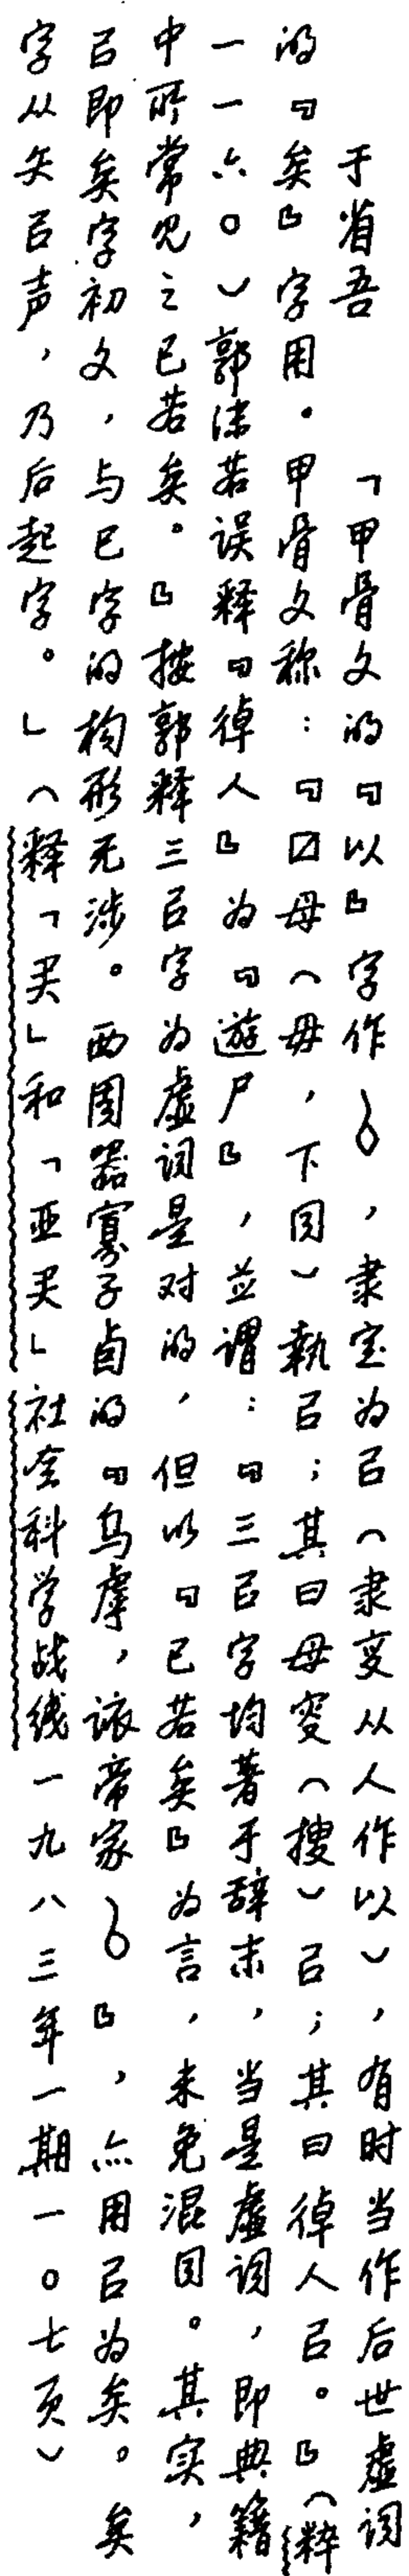 于省吾　「甲骨文的『以』字作𠂤，隶定为㠯（隶变从人作以），有时当作后世虚词
的『矣』字用。甲骨文称：『囗母（毋，下同）執㠯；其曰母窔（搜）㠯；其曰倬人㠯。』（粹
一一六〇）郭沫若误释『倬人』为『遊尸』，並谓：『三㠯字均著于辞末，当是虚词，即典籍
中所常见之已若矣。』按郭释三㠯字为虚词是对的，但以『已若矣』为言，未免混同。其实，
㠯即矣字初文，与已字的构形无涉。西周器寡子卣的『乌虖，该帝家』，亦用㠯为矣。矣
字从矢㠯声，乃后起字。」（释「𠂤」和「亚」社会科学战线一九八三年一期一〇七页）